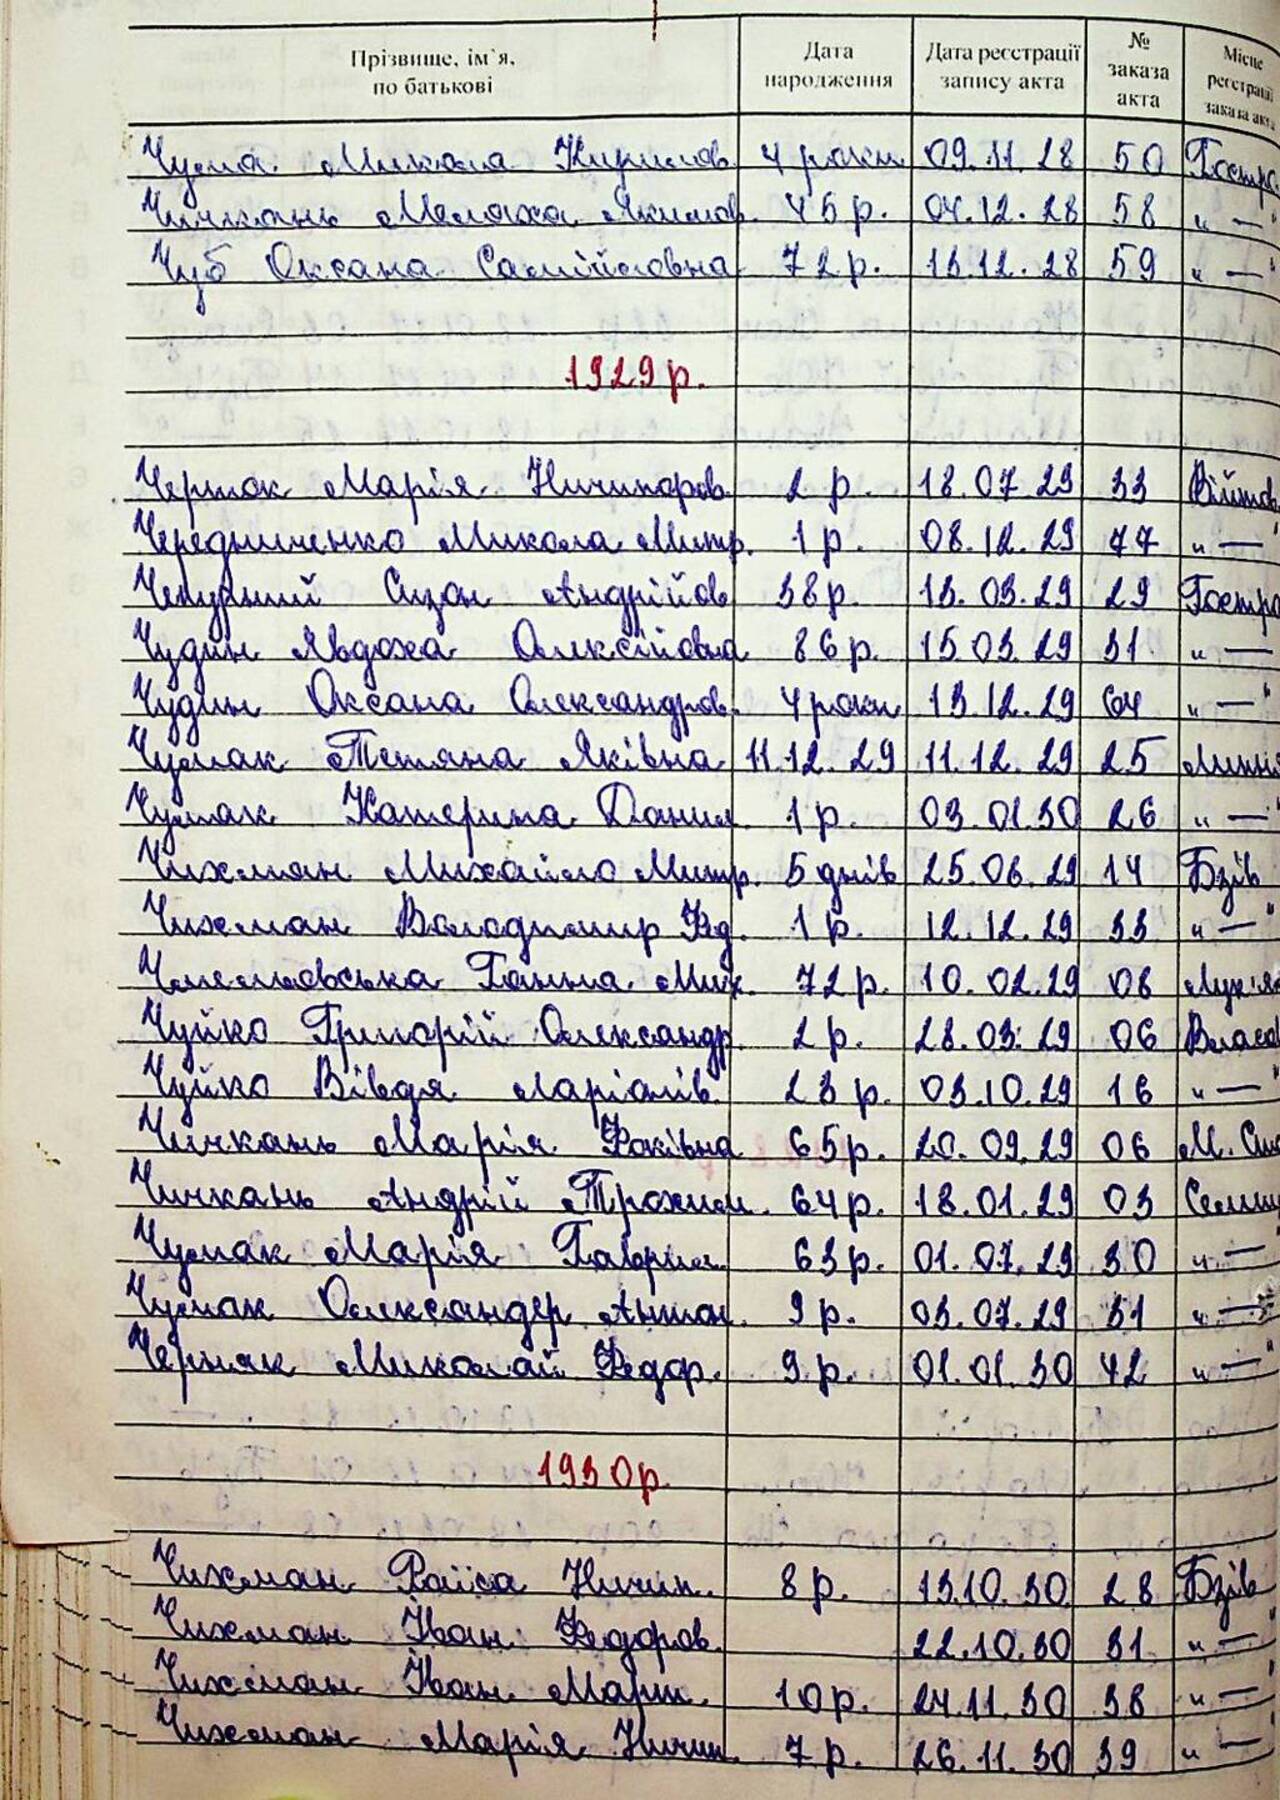 Прізвище, ім`я, по батькові Дата народження Дата реєстрації запису акта № заказа акта Місце реєстрації заказа акта
Чума Микола Кирилов. 4 роки 09.11.28 50 Гостро
Чичкань Мелаха Якимов. 45р. 04.12.28 58 "—"
Чуб Оксана Самійловна 72р. 13.12.28 59 "—"
1929р.
Марія Ничипоров. 2 р. 18.07.29 33 Війтов
Чередниченко Микола Митр. 1 р. 08.12.29 77 "—"
Чепурний Сизон Андрійов 38р. 13.03.29 29 Гостро
Чудин Явдоха Олексіївна 86р. 15.03.29 31 "—"
Чудин Оксана Олександров. 4 роки 13.12.29 64 "—"
Чумак Тетяна Яківна 11.12.29 11.12.29 25
Чумак Катерина Данил. 1 р. 03.01.30 26 "—"
Чихман Михайло Митр. 5 днів 25.06.29 14 Бзів
Чихман Володимир Фед. 1 р. 12.12.29 33 "—"
Ганна Мих. 72р. 10.02.29 08 Лук'ян
Чуйко Григорій Олександр. 2 р. 28.03.29 06 Власо
Чуйко Вівдя Маріанів. 23 р. 03.10.29 16 "—"
Чичкань Марія Фоківна 65р. 20.09.29 06 М. Ста
Чичкань Андрій Трохим. 64р. 18.01.29 03
Чумак Марія Гаврил. 63р. 01.07.29 30 "—"
Чумак Олександер Антон. 9 р. 03.07.29 31 "—"
Черняк Миколай Федор. 9 р. 01.01.30 42 "—"
1930р.
Чихман Раїса Ничип. 8 р. 13.10.30 28 Бзів
Чихман Іван Федоров. 22.10.30 31 "—"
Чихман Іван Март. 10р. 24.11.30 38 "—"
Чихман Марія Ничип. 7 р. 26.11.30 39 "—"